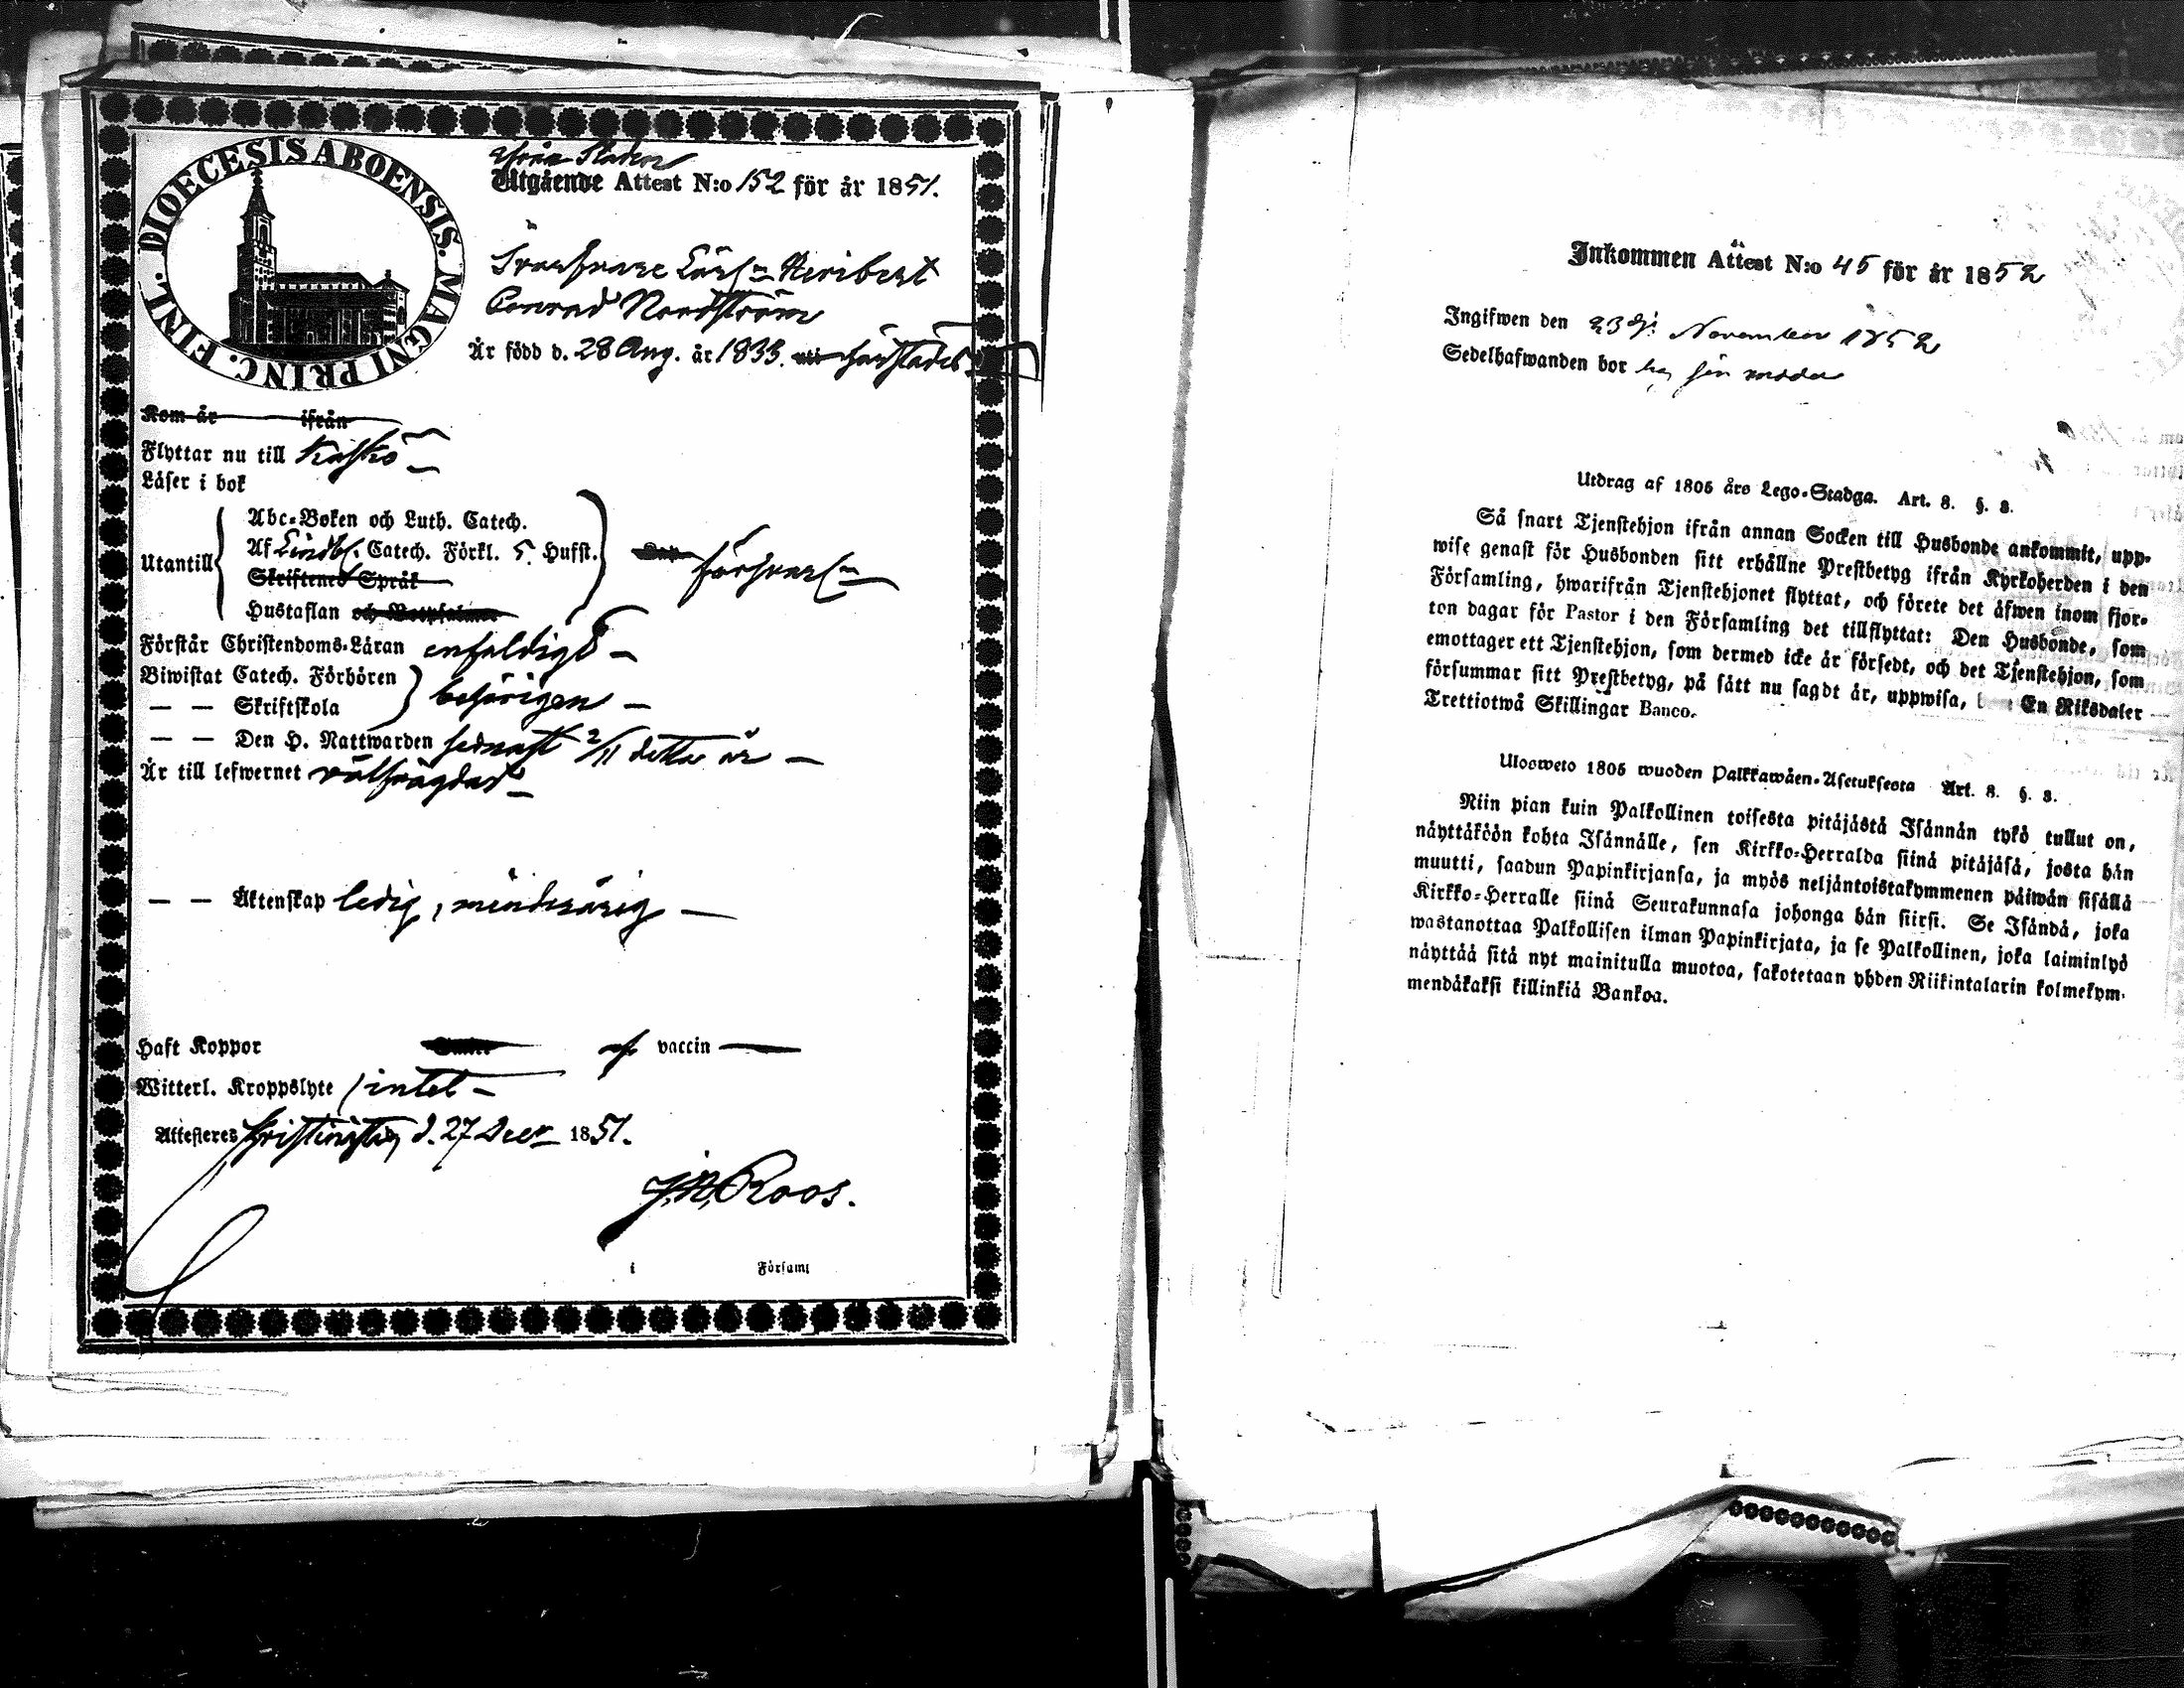 DIOECESIS ABOENSIS. MAGNI PRINC. FINL.
ifrån Staden
Utgående Attest N:o 152 för år 1851.
Svarfvare Lärl:n Heribert
Conrad Nordström
Är född d. 28 Aug. år 1833. uti härstädes
Kom år ifrån
Flyttar nu till Kaskö
Läser i bok
Utantill
Abc-Boken och Luth. Catech.
Af Lindbl. Catech. Förkl. 5 Hufst.
Skriftenes Språk
Hustaflan och
försvarl:n
Förstår Christendoms-Läran enfaldigt
Biwistat Catech. Förhören
— — Skriftskola
behörigen
— — Den H. Nattwarden sednast 2/11 detta år
Är till lefwernet välfrägdad
— — Äktenskap ledig, minderårig
Haft Koppor af vaccin
Witterl. Kroppslyte intet
Attesteras Christinestad d. 27 Decr 1851.
Roos.
i Församl
Inkommen Attest N:o 45 för år 1852
Ingifwen den 23 November 1852
Sedelhafwanden bor hos sin moder
Utdrag af 1805 års Lego-Stadga. Art. 8. §. 8.
Så snart Tjenstehjon ifrån annan Socken till Husbonde ankommit, upp-
wise genast för Husbonden sitt erhållne Prestbetyg ifrån Kyrkoherden i den
Församling, hwarifrån Tjenstehjonet flyttat, och förete det äfwen inom fjor-
ton dagar för Pastor i den Församling det tillflyttat: Den Husbonde, som
emottager ett Tjenstehjon, som dermed icke är försedt, och det Tjenstehjon, som
försummar sitt Prestbetyg, på sätt nu sagdt är, uppwisa, En Riksdaler
Trettiotwå Skillingar Banco.
Ulosweto 1805 wuoden Palkkawäen-Asetuksesta Art. 8. §. 8.
Niin pian kuin Palkollinen toisesta pitäjästä Isännän tykö tullut on,
näyttäköön kohta Isännälle, sen Kirkko-Herralda siinä pitäjäsä, josta hän
muutti, saadun Papinkirjansa, ja myös neljäntoistakymmenen päiwän sisällä
Kirkko-Herralle siinä Seurakunnasa johonga hän siirsi. Se Isändä, joka
wastanottaa Palkollisen ilman Papinkirjata, ja se Palkollinen, joka laiminlyö
näyttää sitä nyt mainitulla muotoa, sakotetaan yhden Riikintalarin kolmekym-
mendäkaksi killinkiä Bankoa.